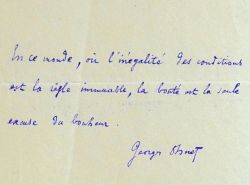 En ce monde, où l'inégalité des conditions
est la règle immuable, la bonté est la seule
excuse du bonheur.
Georges Ohnet